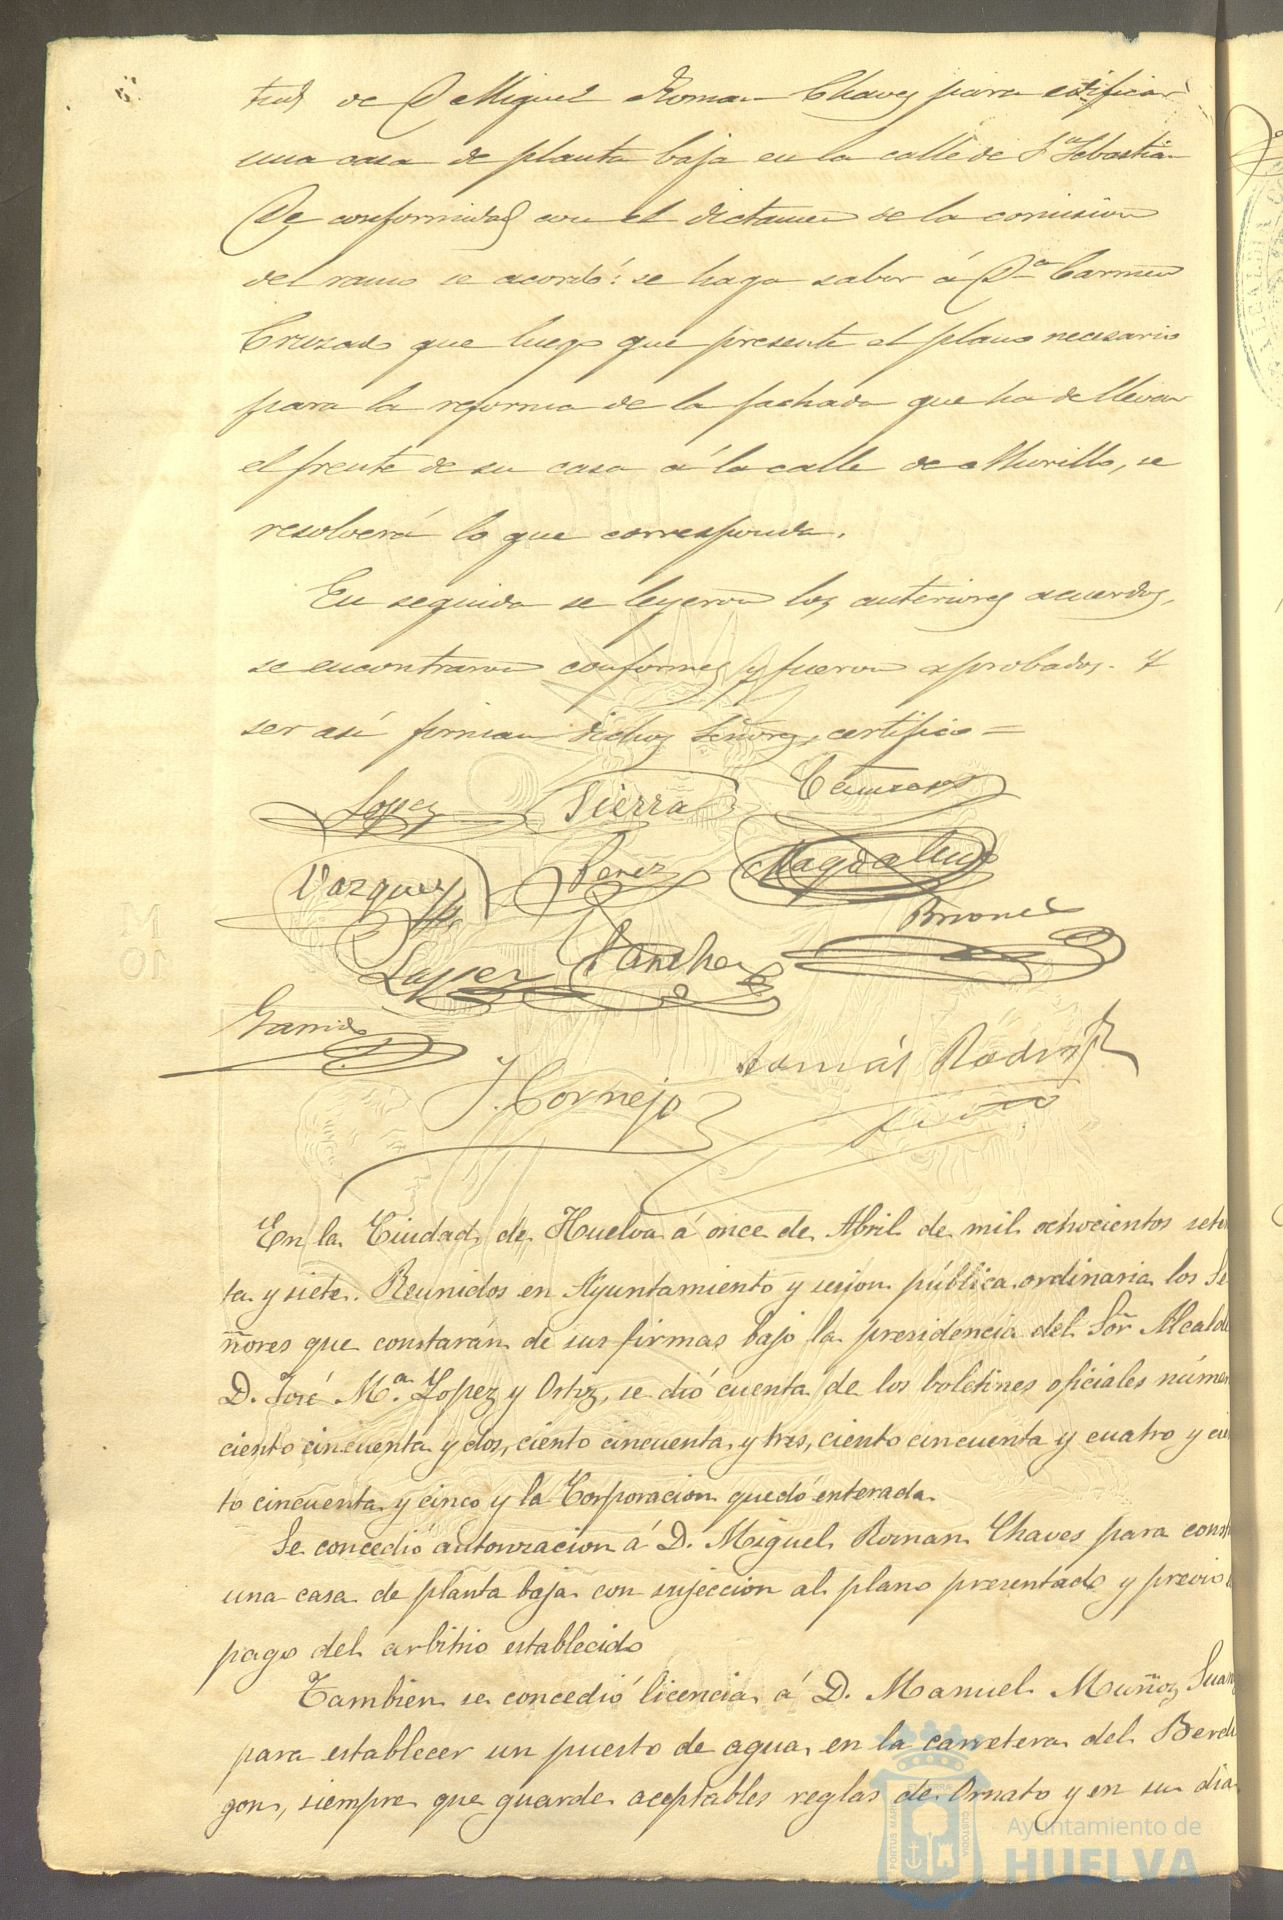 tud de D Miguel Roman Chaves para edificar
una casa de planta baja en la calle de Sn Sebastian
De conformidad con el dictamen de la comision
del ramo se acordó: se haga saber á Dª Carmen
Cruzado que luego que presente el plano necesario
para la reforma de la fachada que ha de llevar
el frente de su casa á la calle de Murillo, se
resolverá lo que corresponda.
En seguida se leyeron los anteriores acuerdos,
se encontraron conformes y fueron aprobados. Y
ser así firman dichos Señores, certifico =
Lopez Tierra
Vazquez Perez Magdaleno
Brione
Lopez Sanchez
Garrido
Tomás Rodrig
J. Cornejo
En la Ciudad de Huelva á once de Abril de mil ochocientos seten
ta y siete. Reunidos en Ayuntamiento y sesion pública ordinaria los Se
ñores que constarán de sus firmas bajo la presidencia del Soñr Alcalde
D. José Mª. Lopez y Ortiz, se dió cuenta de los boletines oficiales númer
ciento cincuenta y dos, ciento cincuenta y tres, ciento cincuenta y cuatro y cien
to cincuenta y cinco y la Corporacion quedó enterada.
Se concedió autorizacion á D. Miguel Roman Chaves para const
una casa de planta baja con sujeccion al plano presentado y previo
pago del arbitrio establecido
Tambien se concedió licencia á D. Manuel Muñoz Suar
para establecer un puesto de agua en la carretera del Berdi
gon, siempre que guarde aceptables reglas de Ornato y en su dia
Ayuntamiento de
HUELVA